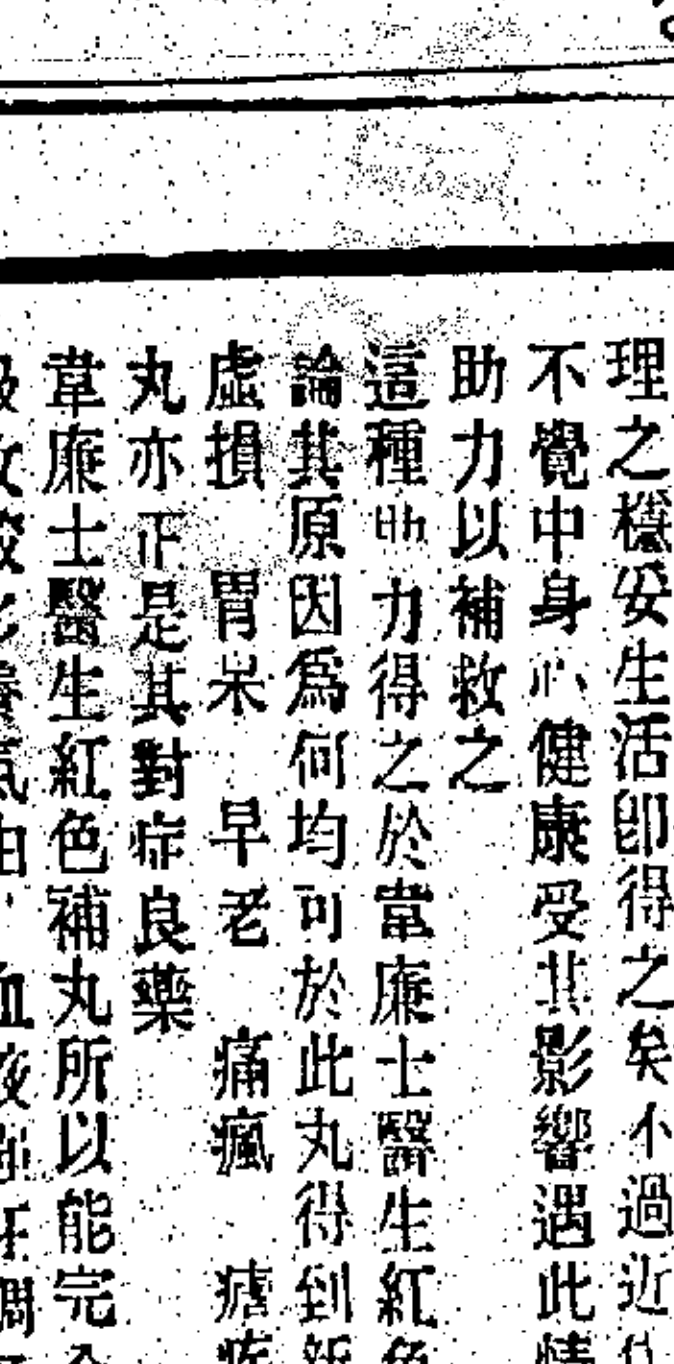 理之穩安生活卽得之矣不過近代
不覺中身心健康受其影響遇此情
助力以補救之
這種助力得之於韋廉士醫生紅色
論其原因爲何均可於此丸得到新
虛損 胃呆 早老 痛瘋 瘧疾
丸亦正是其對症良藥
韋廉士醫生紅色補丸所以能完全